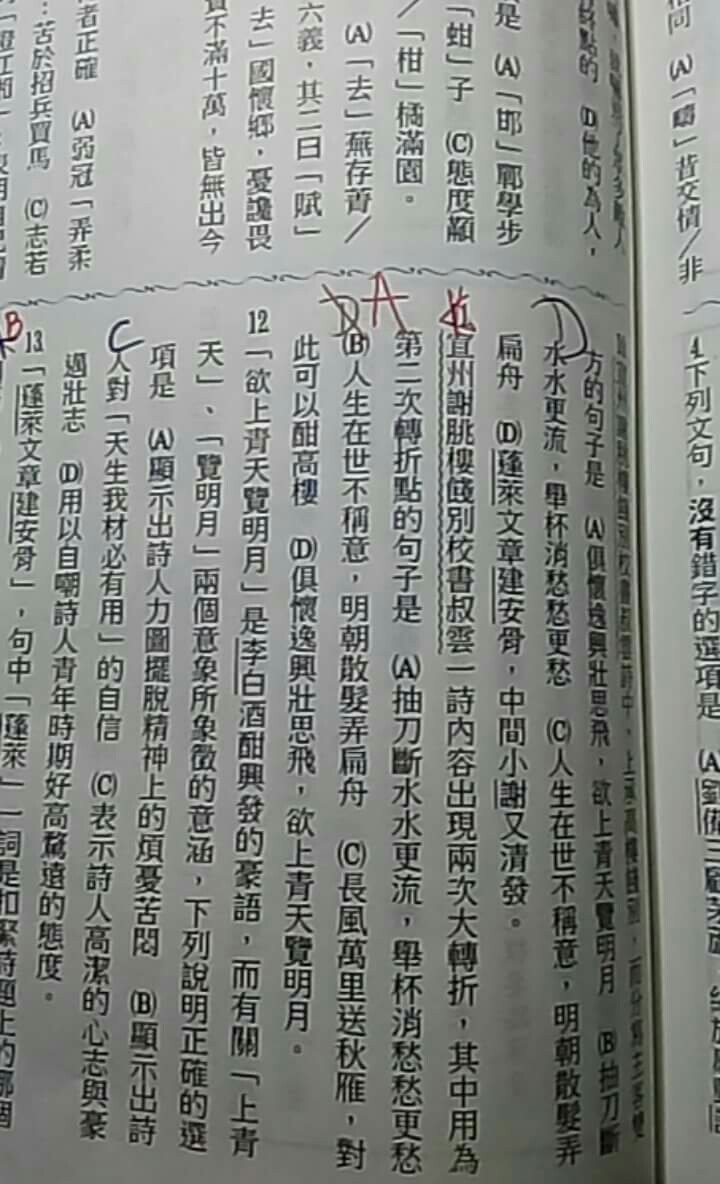 相同 (A)「疇」昔交情/非
終點的 (D)他的為人，
是 (A)「邯」鄲學步
「蚶」子 (C)態度顢
/「柑」橘滿園。
(A)「去」蕪存菁/
六義，其二曰「賦」
去」國懷鄉，憂讒畏
不滿十萬，皆無出今
者正確 (A)弱冠「弄柔
：苦於招兵買馬 (C)志若
4.下列文句，沒有錯字的選項是 (A)
方的句子是 (A)俱懷逸興壯思飛，欲上青天覽明月 (B)抽刀斷
D
水水更流，舉杯消愁愁更愁 (C)人生在世不稱意，明朝散髮弄
扁舟 (D)蓬萊文章建安骨，中間小謝又清發。
宣州謝朓樓餞別校書叔雲一詩內容出現兩次大轉折，其中用為
A
第二次轉折點的句子是 (A)抽刀斷水水更流，舉杯消愁愁更愁
D
(B)人生在世不稱意，明朝散髮弄扁舟 (C)長風萬里送秋雁，對
此可以酣高樓 (D)俱懷逸興壯思飛，欲上青天覽明月。
12「欲上青天覽明月」是李白酒酣興發的豪語，而有關「上青
天」、「覽明月」兩個意象所象徵的意涵，下列說明正確的選
項是 (A)顯示出詩人力圖擺脫精神上的煩憂苦悶 (B)顯示出詩
C
人對「天生我材必有用」的自信 (C)表示詩人高潔的心志與豪
邁壯志 (D)用以自嘲詩人青年時期好高騖遠的態度。
B
13「蓬萊文章建安骨」，句中「蓬萊」一詞是扣緊詩題上的哪個